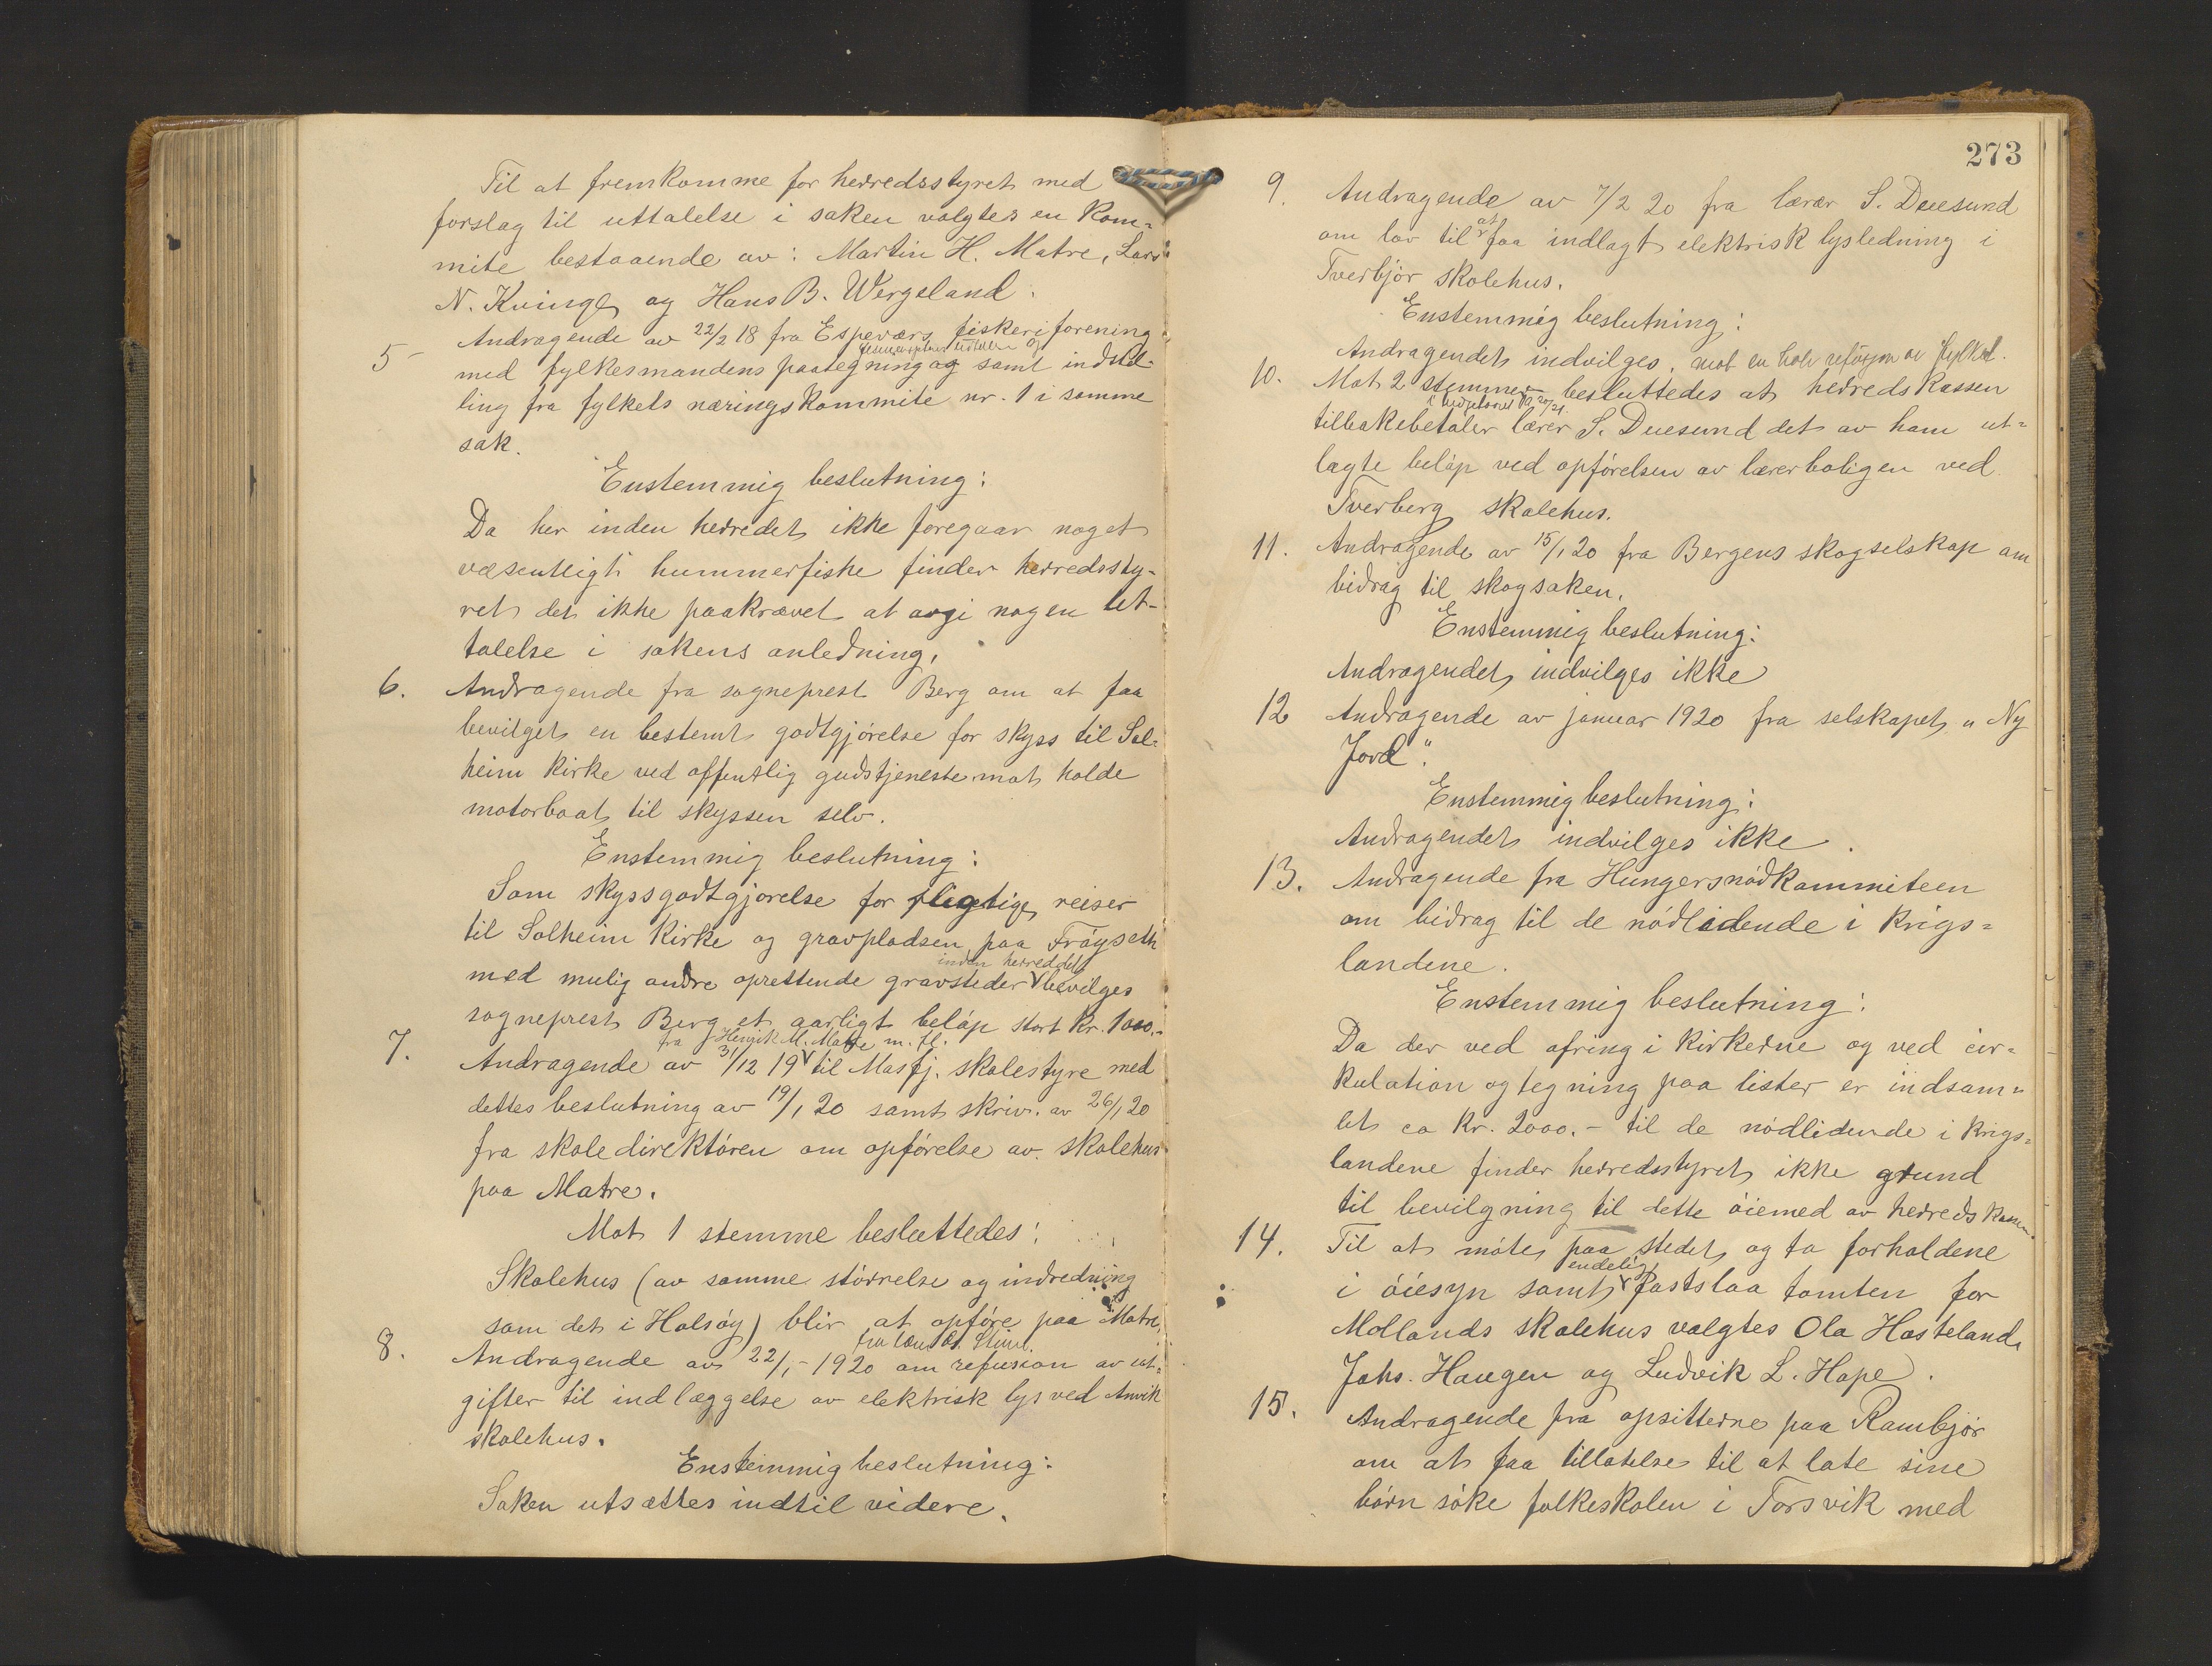 Til at fremkomme for herredsstyret med
forslag til uttalelse i saken valgtes en kom-
mite bestaaende av: Martin H. Matre, Lars
N. Kvinge og Hans B. Wergeland.
5 Andragende av 22/2 18 fra Espeværs fiskeriforening
med fylkesmandens paategning og samt indstil-
ling fra fylkets næringskommite nr. 1 i samme
sak.
Enstemmig beslutning:
Da her inden herredet ikke foregaar noget
væsentligt hummerfiske finder herredssty-
ret det ikke paakrævet at avgi nogen ut-
talelse i sakens anledning.
6. Andragende fra sogneprest Berg om at faa
bevilget en bestemt godtgjørelse for skyss til Sol-
heim kirke ved offentlig gudstjeneste mot holde
motorbaat til skyssen selv.
Enstemmig beslutning:
Som skyssgodtgjørelse for pligtige reiser
til Solheim Kirke og gravpladsen paa Frøyseth
inden herredet
med mulig andre oprettende gravsteder bevilges
sogneprest Berg et aarligt beløp stort kr. 1000.-
fra Henrik M. Matre m. fl.
7. Andragende av 31/12 19 til Masfj. skolestyre med
dettes beslutning av 19/1 20 samt skriv. av 26/1 20
fra skoledirektøren om opførelse av skolehus
paa Matre.
Mot 1 stemme besluttedes:
Skolehus (av samme størrelse og indredning
som det i Halsøy) blir at opføre paa Matre.
8. Andragende av 22/1 - 1920 om refusion av ut-
gifter til indlæggelse av elektrisk lys ved Anvik
skolehus.
Enstemmig beslutning:
Saken utsættes indtil videre.
273
9. Andragende av 7/2 20 fra lærer S. Duesund
om lov til at faa indlagt elektrisk lysledning i
Tverbjør skolehus.
Enstemmig beslutning:
Andragendet indvilges, mot en halv refusjon av fylket.
10. Mot 2 stemmer besluttedes at herredskassen
i budgetaaret 1920/21
tilbakebetaler lærer S. Duesund det av ham ut-
lagte beløp ved opførelsen av lærerboligen ved
Tverberg skolehus.
11. Andragende av 15/1 20 fra Bergens skogselskap om
bidrag til skogsaken.
Enstemmig beslutning:
Andragendet indvilges ikke
12 Andragende av januar 1920 fra selskapet „Ny
Jord".
Enstemmig beslutning:
Andragendet indvilges ikke.
13. Andragende fra Hungersnødkommiteen
om bidrag til de nødlidende i krigs-
landene.
Enstemmig beslutning:
Da der ved ofring i kirkerne og ved cir-
kulation og tegning paa lister er indsam-
let ca kr. 2000.- til de nødlidende i krigs-
landene finder herredsstyret ikke grund
til bevilgning til dette øiemed av herredskassen.
14. Til at møte paa stedet og ta forholdene
endelig
i øiesyn samt fastslaa tomten for
Mollands skolehus valgtes Ola Hosteland,
Johs. Haugen og Ludvik L. Hope.
15. Andragende fra opsitterne paa Rambjør
om at faa tillatelse til at late sine
børn søke folkeskolen i Torsvik med